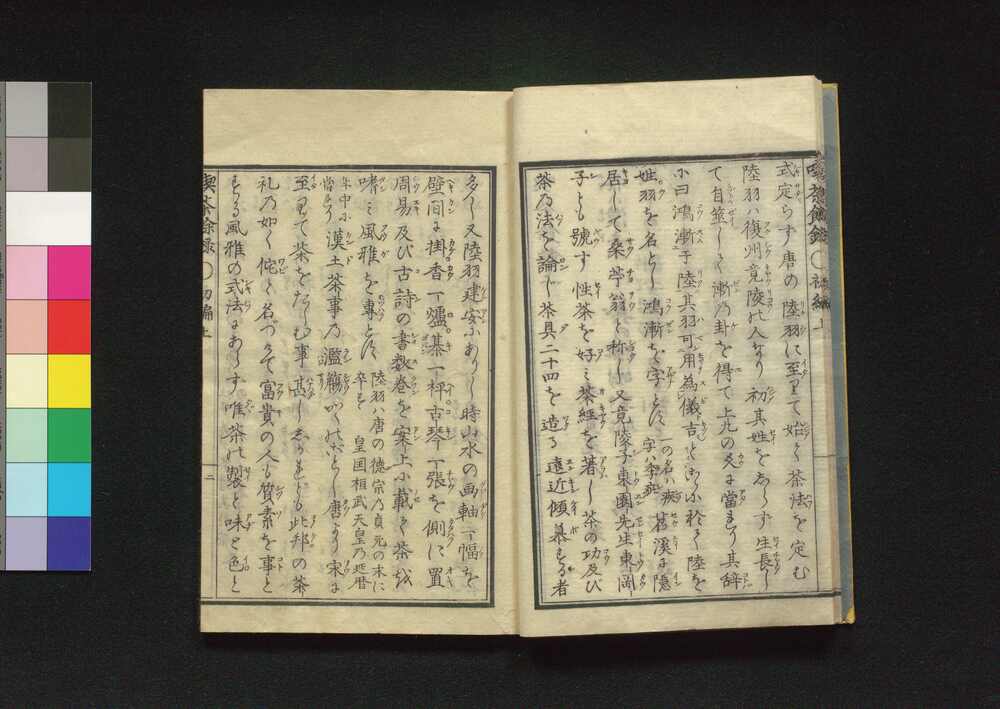 喫茶餘録 初編 上
式定らず唐の陸羽に至りて始て茶法を定む
陸羽ハ復州竟陵の人なり初其姓をしらず生長し
て自筮して漸の卦を得て上九の爻に當まり其辞
に曰鴻漸于陸其羽可用為儀吉と是に於て陸を
姓羽を名とし鴻漸を字とす一の名ハ疾字ハ季疵苕溪に隠
居して桑苧翁と称し又竟陵子東園先生東岡
子とも號す性茶を好ミ茶經を著し茶の功及び
茶乃法を論じ茶具二十四を造る遠近傾慕する者
多し又陸羽建安にありし時山水の画軸一幅を
壁間に掛香一爐棊一枰古琴一張を側に置
周易及び古詩の書数巻を案上に載て茶を
嗜ミ風雅を専とす陸羽ハ唐の徳宗乃貞元の末に
卒す皇国桓武天皇乃延暦
年中に當る漢土茶事乃濫觴かくのごとし唐より宋に
至りて茶をたしむ事甚しされども此邦の茶
礼乃如く侘と名づけて富貴の人も質素を事と
する風雅の式法にあらず唯茶の製と味と色と
喫茶餘録 初編 上
二